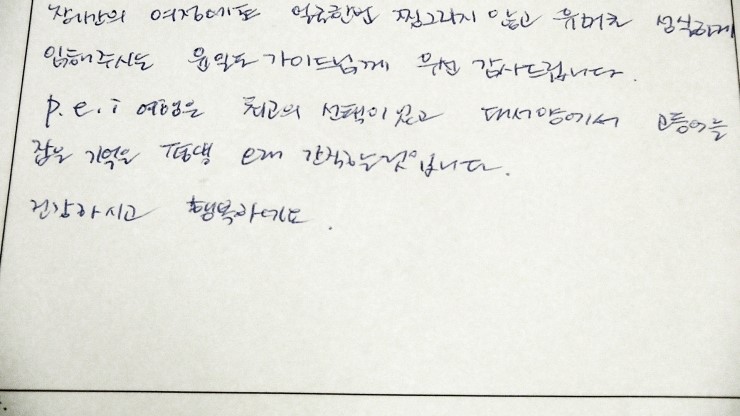 장시간의 여정에도 얼굴한번 찌그리지 않고 유머와 성실하게
임해주시는 윤일도 가이드님께 우선 감사드립니다.
p.e.i 여행은 최고의 선택이었고 대서양에서 고등어를
잡은 기억은 평생 오래 간직하는것입니다.
건강하시고 행복하세요.